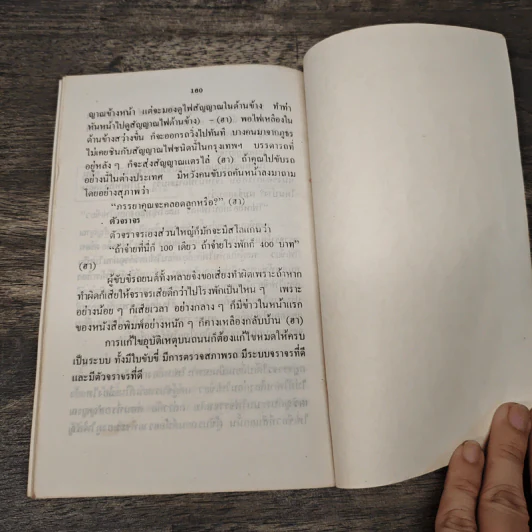 160
ญาณข้างหน้า แต่จะมองดูไฟสัญญาณในด้านข้าง ทำท่า
หันหน้าไปดูสัญญาณไฟด้านข้าง) – (ฮา) พอไฟเหลืองใน
ด้านข้างสว่างขึ้น ก็จะออกรถวิ่งไปทันที บางคนมาจากภูธร
ไม่เคยชินกับสัญญาณไฟชนิดนี้ในกรุงเทพฯ บรรดารถที่
อยู่หลัง ๆ ก็จะส่งสัญญาณแตรไล่ (ฮา) ถ้าคุณไปขับรถ
อย่างนี้ในต่างประเทศ มีหวังคนขับรถคันหน้าลงมาถาม
โดยอย่างสุภาพว่า
“ภรรยาคุณจะคลอดลูกหรือ?” (ฮา)
ตัวจราจร
ตัวจราจรเองส่วนใหญ่ก็มักจะมีสโลแกนว่า
“ถ้าจ่ายที่นี่ก็ 100 เดียว ถ้าจ่ายโรงพักก็ 400 บาท”
(ฮา)
ผู้ขับขี่รถยนต์ทั้งหลายจึงขอเสี่ยงทำผิดเพราะถ้าหาก
ทำผิดก็เสียให้จราจรเสียดีกว่าไปโรงพักเป็นไหน ๆ เพราะ
อย่างน้อย ๆ ก็เสียเวลา อย่างกลาง ๆ ก็มีข่าวในหน้าแรก
ของหนังสือพิมพ์อย่างหนัก ๆ ก็คางเหลืองกลับบ้าน (ฮา)
การแก้ไขอุบัติเหตุบนถนนก็ต้องแก้ไขหมดให้ครบ
เป็นระบบ ทั้งมีใบขับขี่ มีการตรวจสภาพรถ มีระบบจราจรที่ดี
และมีตัวจราจรที่ดี